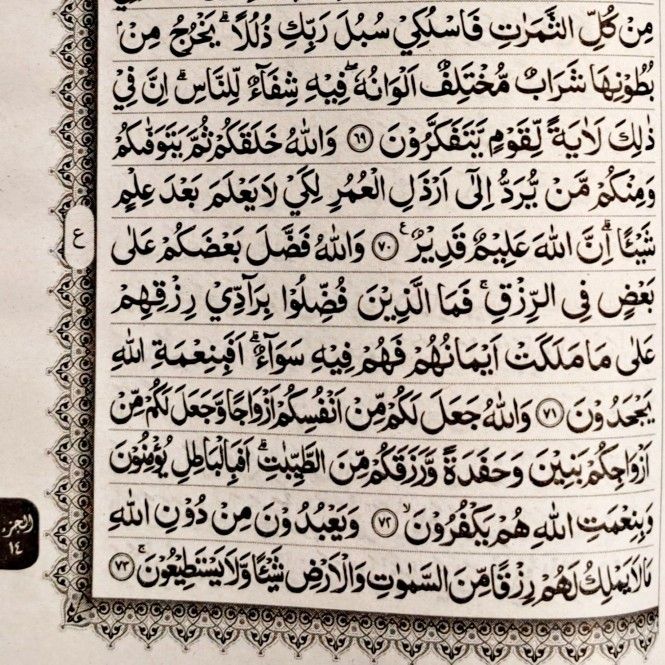 مِنْ كُلِّ الثَّمَرٰتِ فَاسْلُكِيْ سُبُلَ رَبِّكِ ذُلُلًاۗ يَخْرُجُ مِنْۢ
بُطُوْنِهَا شَرَابٌ مُّخْتَلِفٌ اَلْوَانُهٗ ۖفِيْهِ شِفَاۤءٌ لِّلنَّاسِۗ اِنَّ فِيْ
ذٰلِكَ لَاٰيَةً لِّقَوْمٍ يَّتَفَكَّرُوْنَ ٦٩ وَاللّٰهُ خَلَقَكُمْ ثُمَّ يَتَوَفّٰىكُمْ
وَمِنْكُمْ مَّنْ يُّرَدُّ اِلٰٓى اَرْذَلِ الْعُمُرِ لِكَيْ لَا يَعْلَمَ بَعْدَ عِلْمٍ
شَيْـًٔاۗ اِنَّ اللّٰهَ عَلِيْمٌ قَدِيْرٌ ࣖ ٧٠ وَاللّٰهُ فَضَّلَ بَعْضَكُمْ عَلٰى
ع
بَعْضٍ فِى الرِّزْقِۚ فَمَا الَّذِيْنَ فُضِّلُوْا بِرَاۤدِّيْ رِزْقِهِمْ
عَلٰى مَا مَلَكَتْ اَيْمَانُهُمْ فَهُمْ فِيْهِ سَوَاۤءٌۗ اَفَبِنِعْمَةِ اللّٰهِ
يَجْحَدُوْنَ ٧١ وَاللّٰهُ جَعَلَ لَكُمْ مِّنْ اَنْفُسِكُمْ اَزْوَاجًا وَّجَعَلَ لَكُمْ مِّنْ
اَزْوَاجِكُمْ بَنِيْنَ وَحَفَدَةً وَّرَزَقَكُمْ مِّنَ الطَّيِّبٰتِۗ اَفَبِالْبَاطِلِ يُؤْمِنُوْنَ
وَبِنِعْمَتِ اللّٰهِ هُمْ يَكْفُرُوْنَۙ ٧٢ وَيَعْبُدُوْنَ مِنْ دُوْنِ اللّٰهِ
مَا لَا يَمْلِكُ لَهُمْ رِزْقًا مِّنَ السَّمٰوٰتِ وَالْاَرْضِ شَيْـًٔا وَّلَا يَسْتَطِيْعُوْنَۚ ٧٣
الجزء
١٤